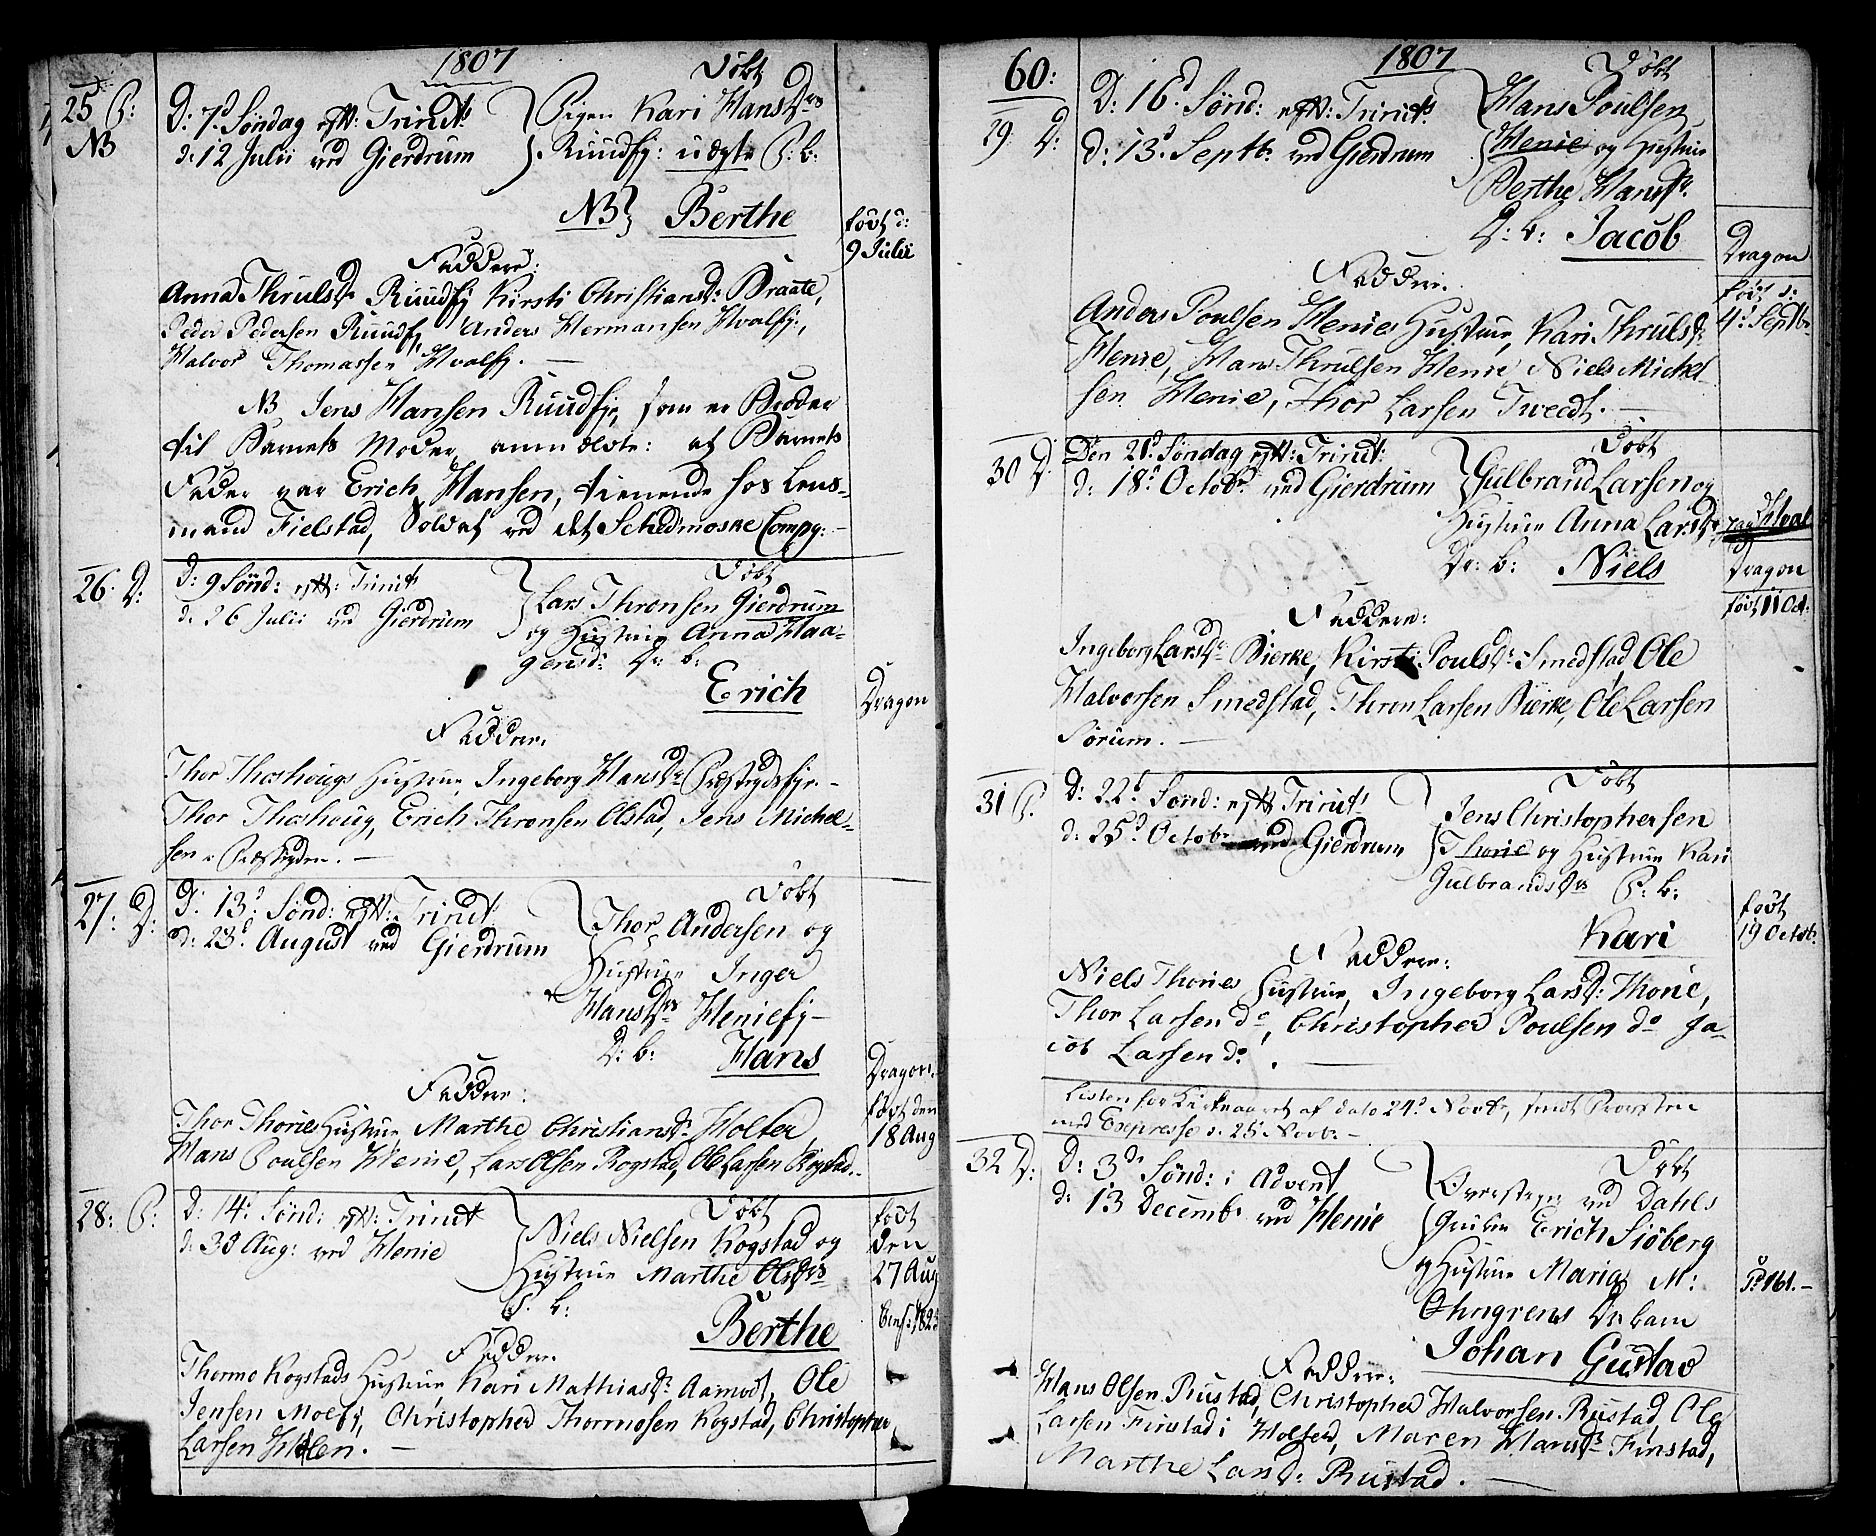 1807
25 P:
NB
D: 7d Söndag eft: Trinit:
d: 12 Julii ved Gierdrum
Döbt
Pigen Kari HansDr
Ruudfj: uægte P: b:
NB Berthe
födt d:
9 Julii
Faddere:
Anna ThrulsDr Ruudfj Kirsti ChristiansD: Braate,
Peder Pedersen Ruudfj, Anders Hermansen Hvalfj:,
Halvor Thomassen Hvalfj. —
NB Jens Hansen Ruudfj, som er Broder
til Barnets Moder, anmældte: at Barnets
Fader var Erich Hansen, tienende hos Lens-
mand Fielstad, Soldat ved det Schedmoske Compg: —
26: D:
D: 9 Sönd: eft: Trinit:
d: 26 Julii ved Gierdrum
Döbt
Lars Thronsen Gierdrum
og Hustrue Anna Haa-
gensD: Dr: b:
Erich
Dragon
Faddere:
Thor Thoshougs Hustrue, Ingeborg HansDr Præstegdsfj: —
Thor Thoshoug, Erich Thronsen Olstad, Jens Michel-
sen Præstegden. —
27: D:
D: 13d: Sönd: eft: Trinit:
d: 23d August ved Gierdrum
Döbt
Thor Andersen og
Hustrue Inger
HansDr Heniefj —
D: b: Hans
Dragon.
födt den
18 Aug
Faddere:
Thor Thories Hustrue, Marthe ChristiansDr Holter,
Hans Poulsen Henie, Lars Olsen Rogstad, Ole Larsen Rogstad. —
28: P:
D: 14d Sönd: eft: Trinit:
d: 30 Aug: ved Henie
Döbt
Niels Nielsen Kogstad og
Hustrue Marthe OlsDr
P. b:
Berthe
födt
den
27 Aug
Conf: 1823
Faddere
Thormo Kogstads Hustrue Kari MathiasDr Aamodt, Ole
Jensen Moefj, Christopher Thormosen Kogstad, Christopher
Larsen Holen. —
60:
1807
29: D:
D: 16d Sönd: eft: Trinit:
d: 13d Septbr ved Gierdrum
Döbt
Hans Poulsen
Henie og Hustrue
Berthe HansDr
D: b: Jacob
Dragon
födt d:
4d Septbr
Faddere.
Anders Poulsen Henies Hustrue, Kari ThrulsDr
Henie, Hans Thrulsen Henie, Niels Michel-
sen Henie, Thor Larsen Tweedt. —
30 D:
Den 21d: Söndag eft: Trinit:
d: 18d Octobr ved Gierdrum
Döbt
Gulbrand Larsen og
Hustrue Anna LarsDr
Dr: b: Niels
paa Hval
Dragon
födt 11 Oct:
Faddere:
Ingeborg LarsDr Bierke, Kirsti PoulsDr Smedstad, Ole
Halvorsen Smedstad, Thron Larsen Bierke, Ole Larsen
Sörum. —
31 P.
D: 22d Sönd: eft: Trinit:
d: 25d Octobr ved Gierdrum
Döbt
Jens Christophersen
Thorie og Hustrue Kari
GulbrandsDr P: b:
Kari
födt
19 Octob:
Faddere:
Niels Thories Hustrue, Ingeborg LarsD: Thorie,
Thor Larsen do, Christopher Poulsen do Ja-
cob Larsen do. —
Listen for Kirkeaaret af dato 24d Novbr, sendt Provsten
med Expresse d. 25 Novbr —
32 D:
D: 3de Sönd: i Advent
d: 13 Decembr ved Henie
Döbt
ved Dahls
Gruben Erich Siöberg
og Hustrue Maria M:
Öhngrens Dr: barn
Johan Gustav
P: 161. —
Faddere:
Hans Olsen Rustad, Christopher Halvorsen Rustad, Ole
Larsen Finstad i Holter, Maren HansDr Finstad,
Marthe LarsD: Rustad. —